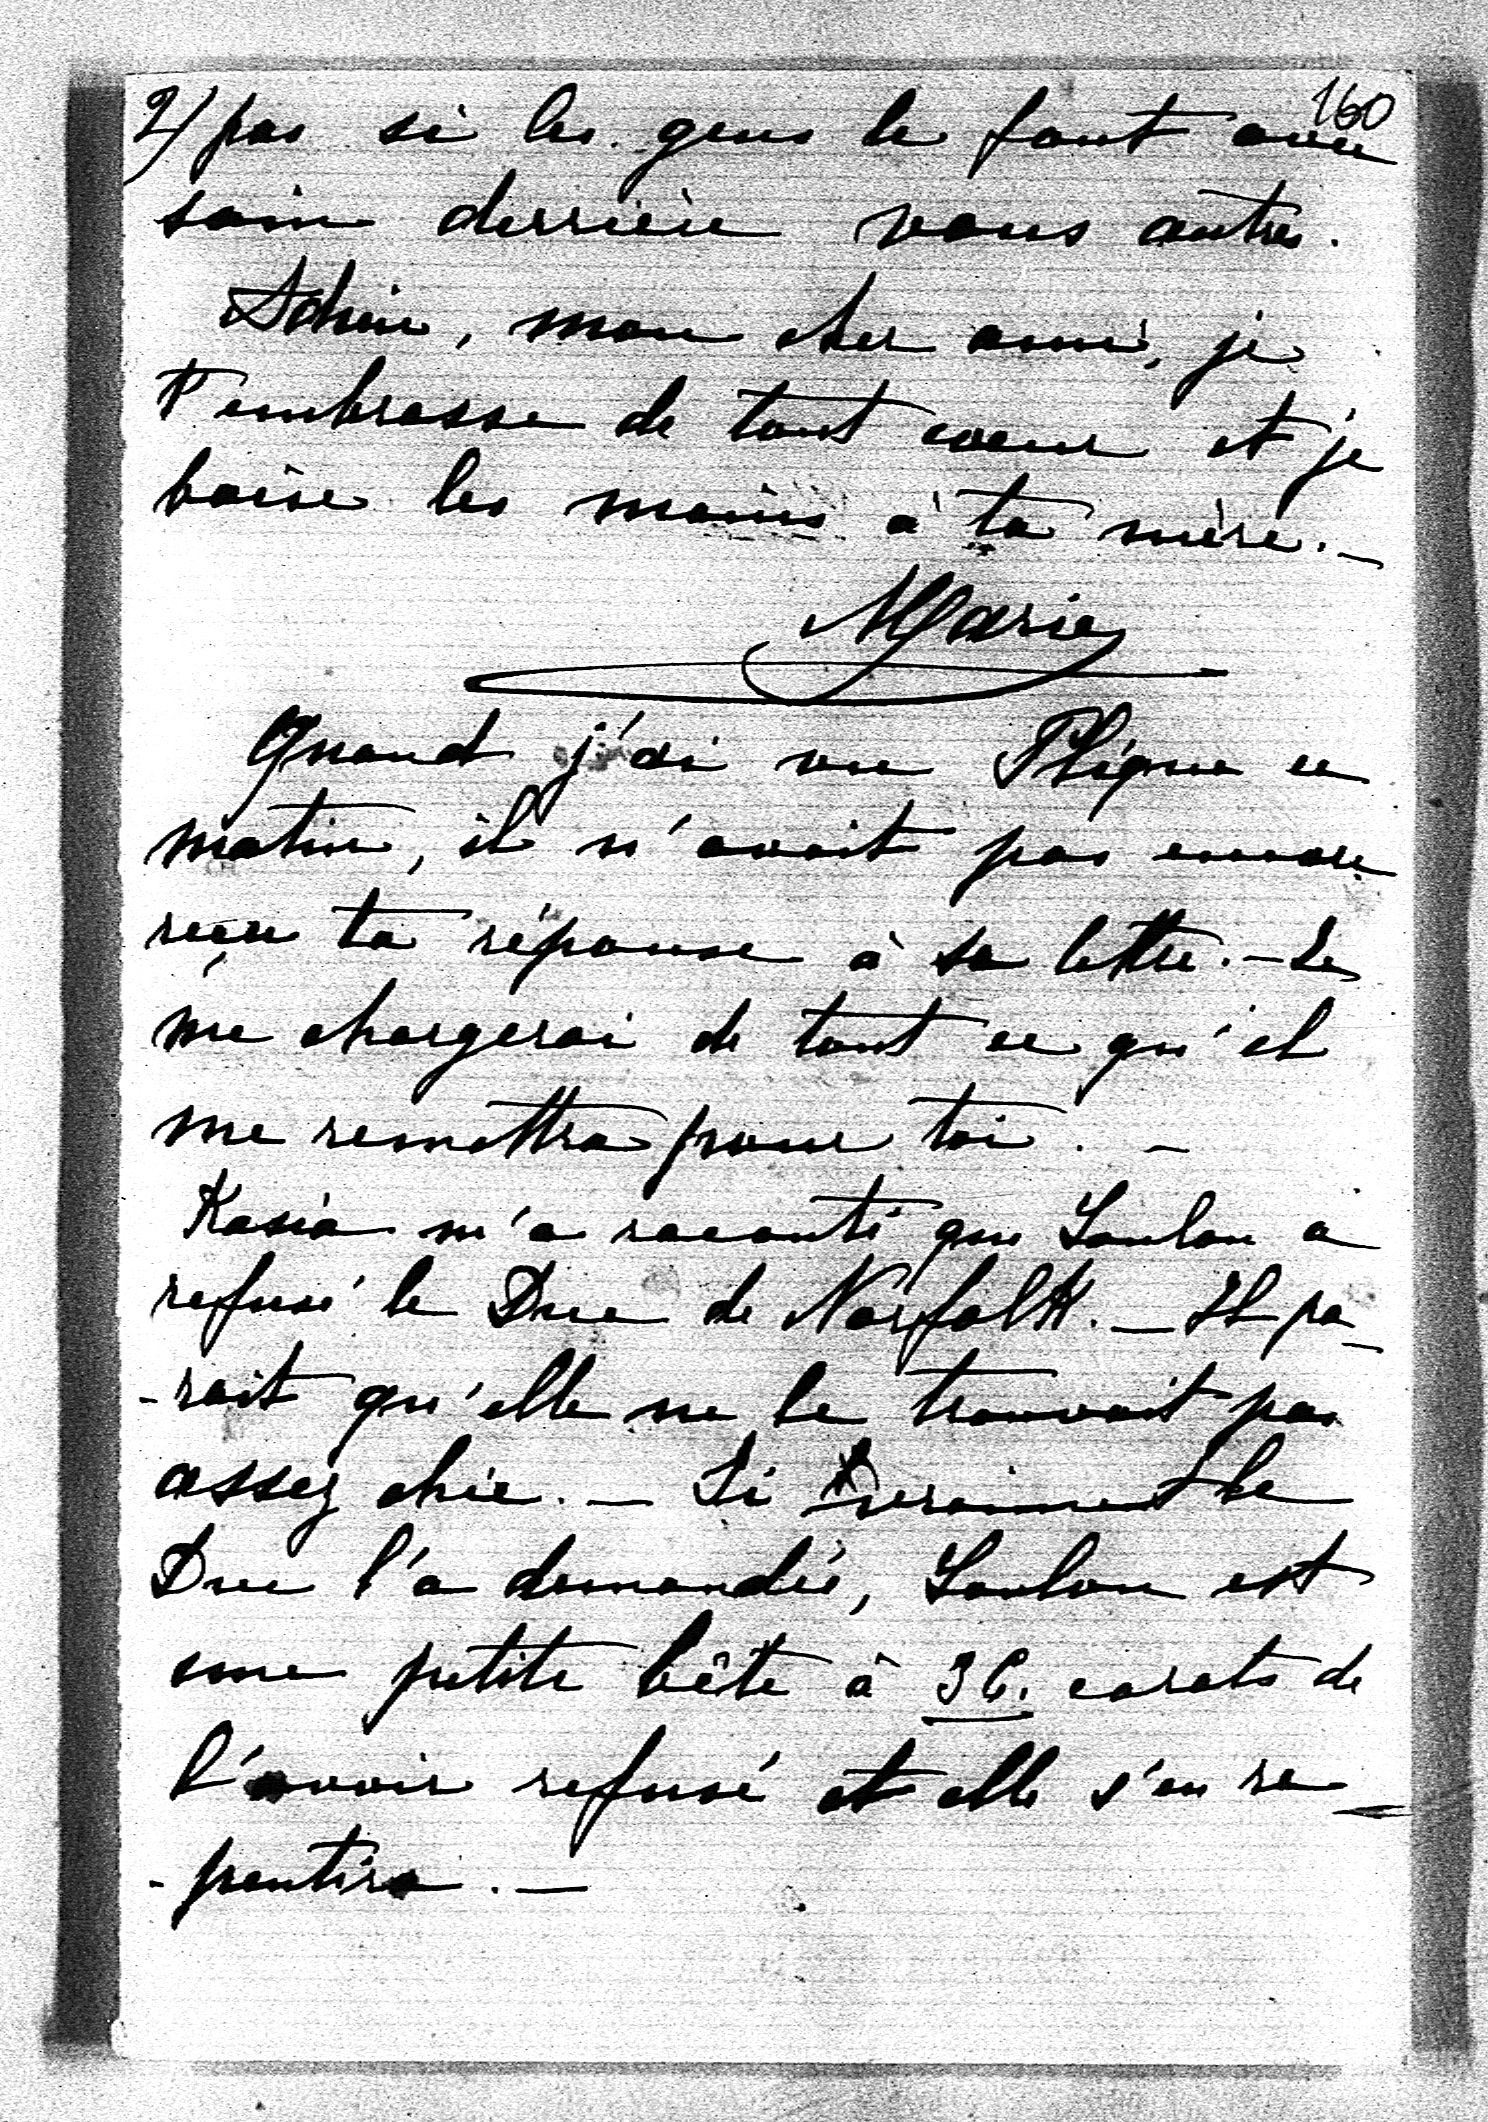 160
2/ pas si les gens le font avec
soin derrière vous autres.
Adieu, mon cher ami, je
t'embrasse de tout coeur et je
baise les mains à ta mère. _
Marie
Quand j'ai vu ce
matin, il n'avait pas encore
reçu ta réponse à sa lettre. - Je
me chargerai de tout ce qu'il
me remettra pour toi. -
Kasia m'a raconté que Loulou a
refusé le Duc de Norfolk. _ Il pa-
-rait qu'elle ne le trouvait pas
assez chic. _ Si vraiment le
Duc l'a demandée, Loulou est
une petite bête à 36. carats de
l'avoir refusé et elle s'en re-
-pentira. _